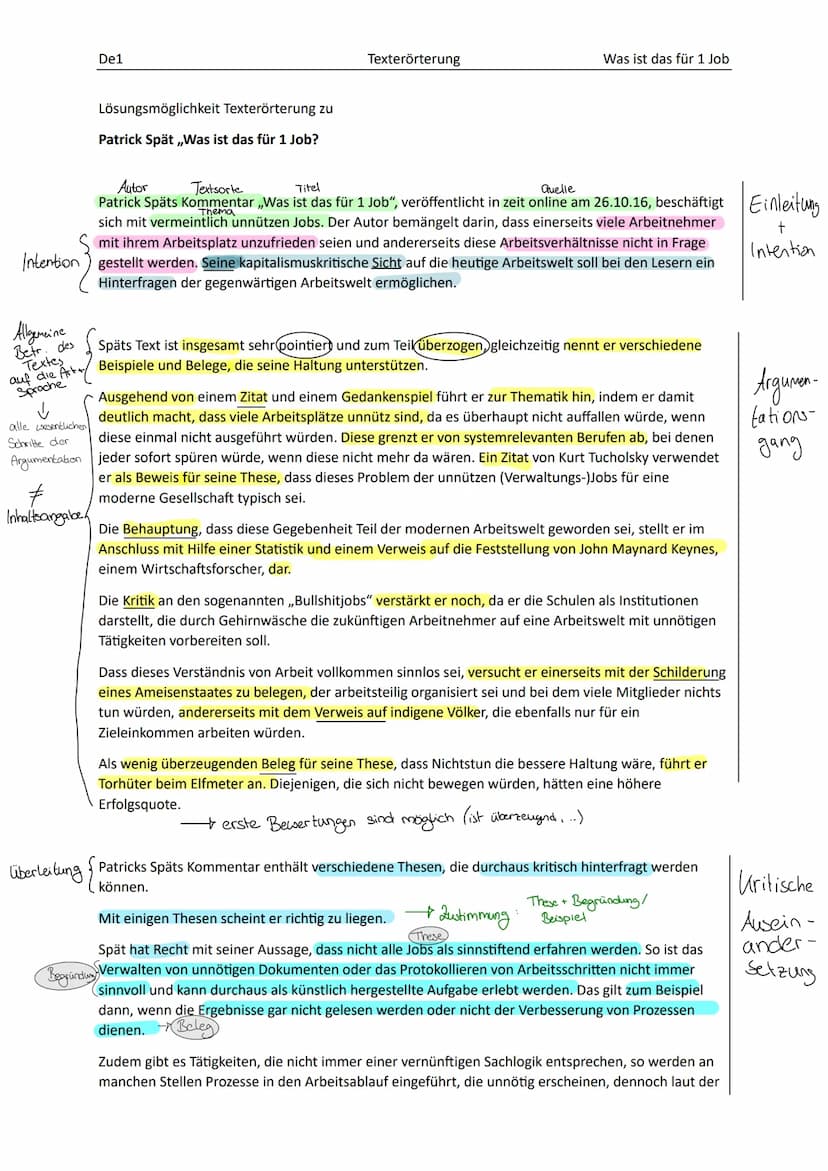 De1 Texterörterung Was ist das für 1 Job
Lösungsmöglichkeit Texterörterung zu
Patrick Spät „Was ist das für 1 Job?
Autor Textsorte Titel Quelle
Patrick Späts Kommentar „Was ist das für 1 Job“, veröffentlicht in zeit online am 26.10.16, beschäftigt
Thema
sich mit vermeintlich unnützen Jobs. Der Autor bemängelt darin, dass einerseits viele Arbeitnehmer
mit ihrem Arbeitsplatz unzufrieden seien und andererseits diese Arbeitsverhältnisse nicht in Frage
gestellt werden. Seine kapitalismuskritische Sicht auf die heutige Arbeitswelt soll bei den Lesern ein
Hinterfragen der gegenwärtigen Arbeitswelt ermöglichen.
Intention
Einleitung
+
Intention
Allgemeine
Betr. des
Textes
auf die Art +
Sprache
alle wesentlichen
Schritte der
Argumentation
≠
Inhaltsangabe
Späts Text ist insgesamt sehr pointiert und zum Teil überzogen, gleichzeitig nennt er verschiedene
Beispiele und Belege, die seine Haltung unterstützen.
Ausgehend von einem Zitat und einem Gedankenspiel führt er zur Thematik hin, indem er damit
deutlich macht, dass viele Arbeitsplätze unnütz sind, da es überhaupt nicht auffallen würde, wenn
diese einmal nicht ausgeführt würden. Diese grenzt er von systemrelevanten Berufen ab, bei denen
jeder sofort spüren würde, wenn diese nicht mehr da wären. Ein Zitat von Kurt Tucholsky verwendet
er als Beweis für seine These, dass dieses Problem der unnützen (Verwaltungs-)Jobs für eine
moderne Gesellschaft typisch sei.
Argumen-
tations-
gang
Die Behauptung, dass diese Gegebenheit Teil der modernen Arbeitswelt geworden sei, stellt er im
Anschluss mit Hilfe einer Statistik und einem Verweis auf die Feststellung von John Maynard Keynes,
einem Wirtschaftsforscher, dar.
Die Kritik an den sogenannten „Bullshitjobs“ verstärkt er noch, da er die Schulen als Institutionen
darstellt, die durch Gehirnwäsche die zukünftigen Arbeitnehmer auf eine Arbeitswelt mit unnötigen
Tätigkeiten vorbereiten soll.
Dass dieses Verständnis von Arbeit vollkommen sinnlos sei, versucht er einerseits mit der Schilderung
eines Ameisenstaates zu belegen, der arbeitsteilig organisiert sei und bei dem viele Mitglieder nichts
tun würden, andererseits mit dem Verweis auf indigene Völker, die ebenfalls nur für ein
Zieleinkommen arbeiten würden.
Als wenig überzeugenden Beleg für seine These, dass Nichtstun die bessere Haltung wäre, führt er
Torhüter beim Elfmeter an. Diejenigen, die sich nicht bewegen würden, hätten eine höhere
Erfolgsquote.
→ erste Bewertungen sind möglich (ist überzeugnd, ..)
Überleitung
Patricks Späts Kommentar enthält verschiedene Thesen, die durchaus kritisch hinterfragt werden
können.
Mit einigen Thesen scheint er richtig zu liegen. → Zustimmung: These + Begründung/
Beispiel
Kritische
Ausein-
ander-
setzung
These
Spät hat Recht mit seiner Aussage, dass nicht alle Jobs als sinnstiftend erfahren werden. So ist das
Begründung
Verwalten von unnötigen Dokumenten oder das Protokollieren von Arbeitsschritten nicht immer
sinnvoll und kann durchaus als künstlich hergestellte Aufgabe erlebt werden. Das gilt zum Beispiel
dann, wenn die Ergebnisse gar nicht gelesen werden oder nicht der Verbesserung von Prozessen
dienen. → Beleg
Zudem gibt es Tätigkeiten, die nicht immer einer vernünftigen Sachlogik entsprechen, so werden an
manchen Stellen Prozesse in den Arbeitsablauf eingeführt, die unnötig erscheinen, dennoch laut der